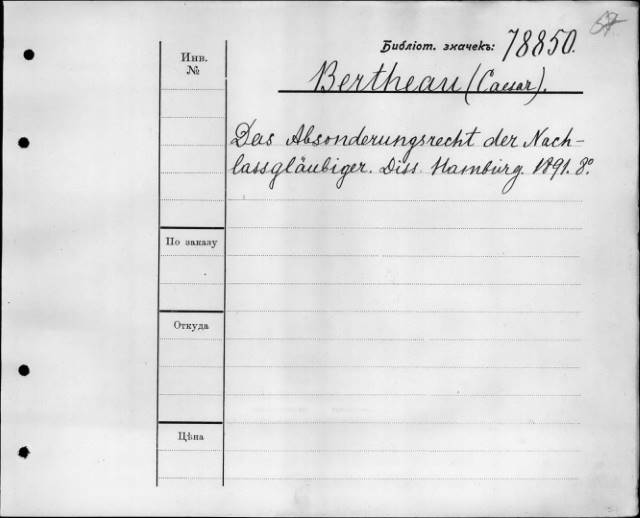 Библіот. значекъ: 78850.
Инв.
№
Bertheau (Caesar).
Das Absonderungsrecht der Nach-
lassgläubiger. Diss. Hamburg. 1891. 8º
По заказу
Откуда
Цѣна